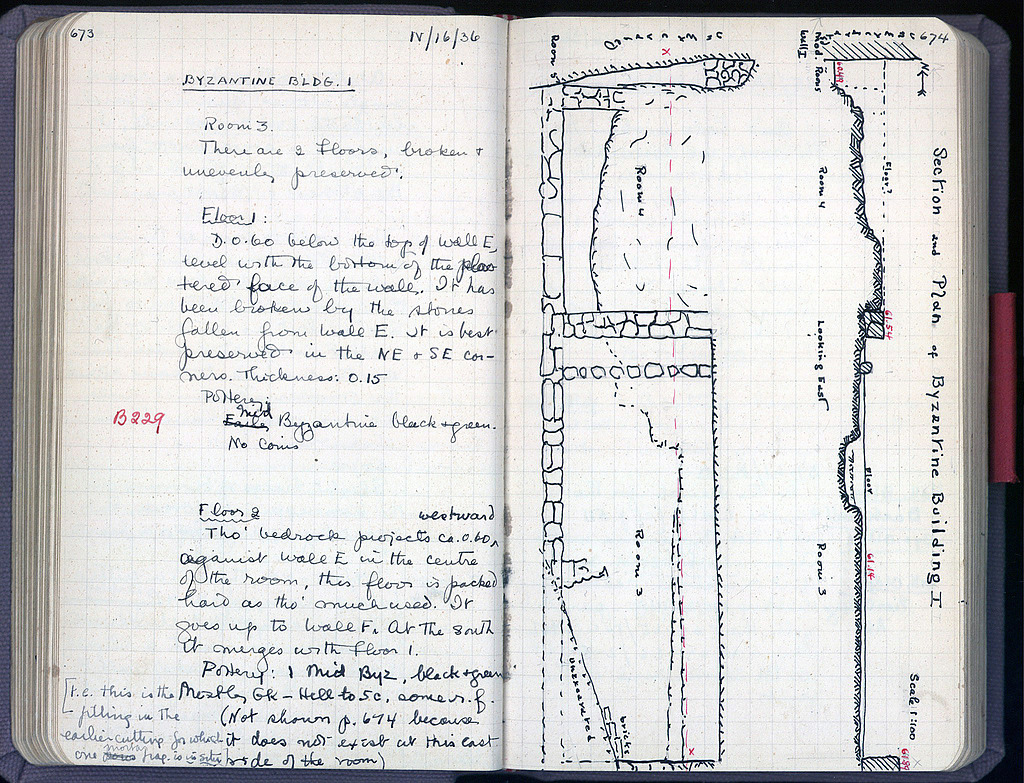 673
IV/16/36
BYZANTINE BLDG. 1
Room 3.
There are 2 floors, broken +
unevenly preserved.
Floor 1:
D. 0.60 below the top of wall E,
level with the bottom of the plas-
tered face of the wall. It has
been broken by the stones
fallen from wall E. It is best
preserved in the NE + SE cor-
ners. Thickness: 0.15
Pottery:
B229
Early Mid Byzantine black + green.
No Coins
Floor 2
Tho' bedrock projects ca. 0.60, westward
against wall E in the centre
of the room, this floor is packed
hard as tho' much used. It
goes up to wall F. At the south
it merges with floor 1.
Pottery: 1 Mid Byz, black + green
Mostly Gk – Hell to 5c, some r. f.
(Not shown p. 674 because
it does not exist at this east
side of the room)
[i.e. this is the
filling in the
earlier cutting for which
one mortar frag. is in situ]
674
Section and Plan of Byzantine Building I
Scale 1:100
N
Mod. Room
Wall I
Floor?
Room 4
61.54
Looking East
Floor
61.14
Room 3
Room 5
X
Room 4
Room 3
unexcavated
bricks
X